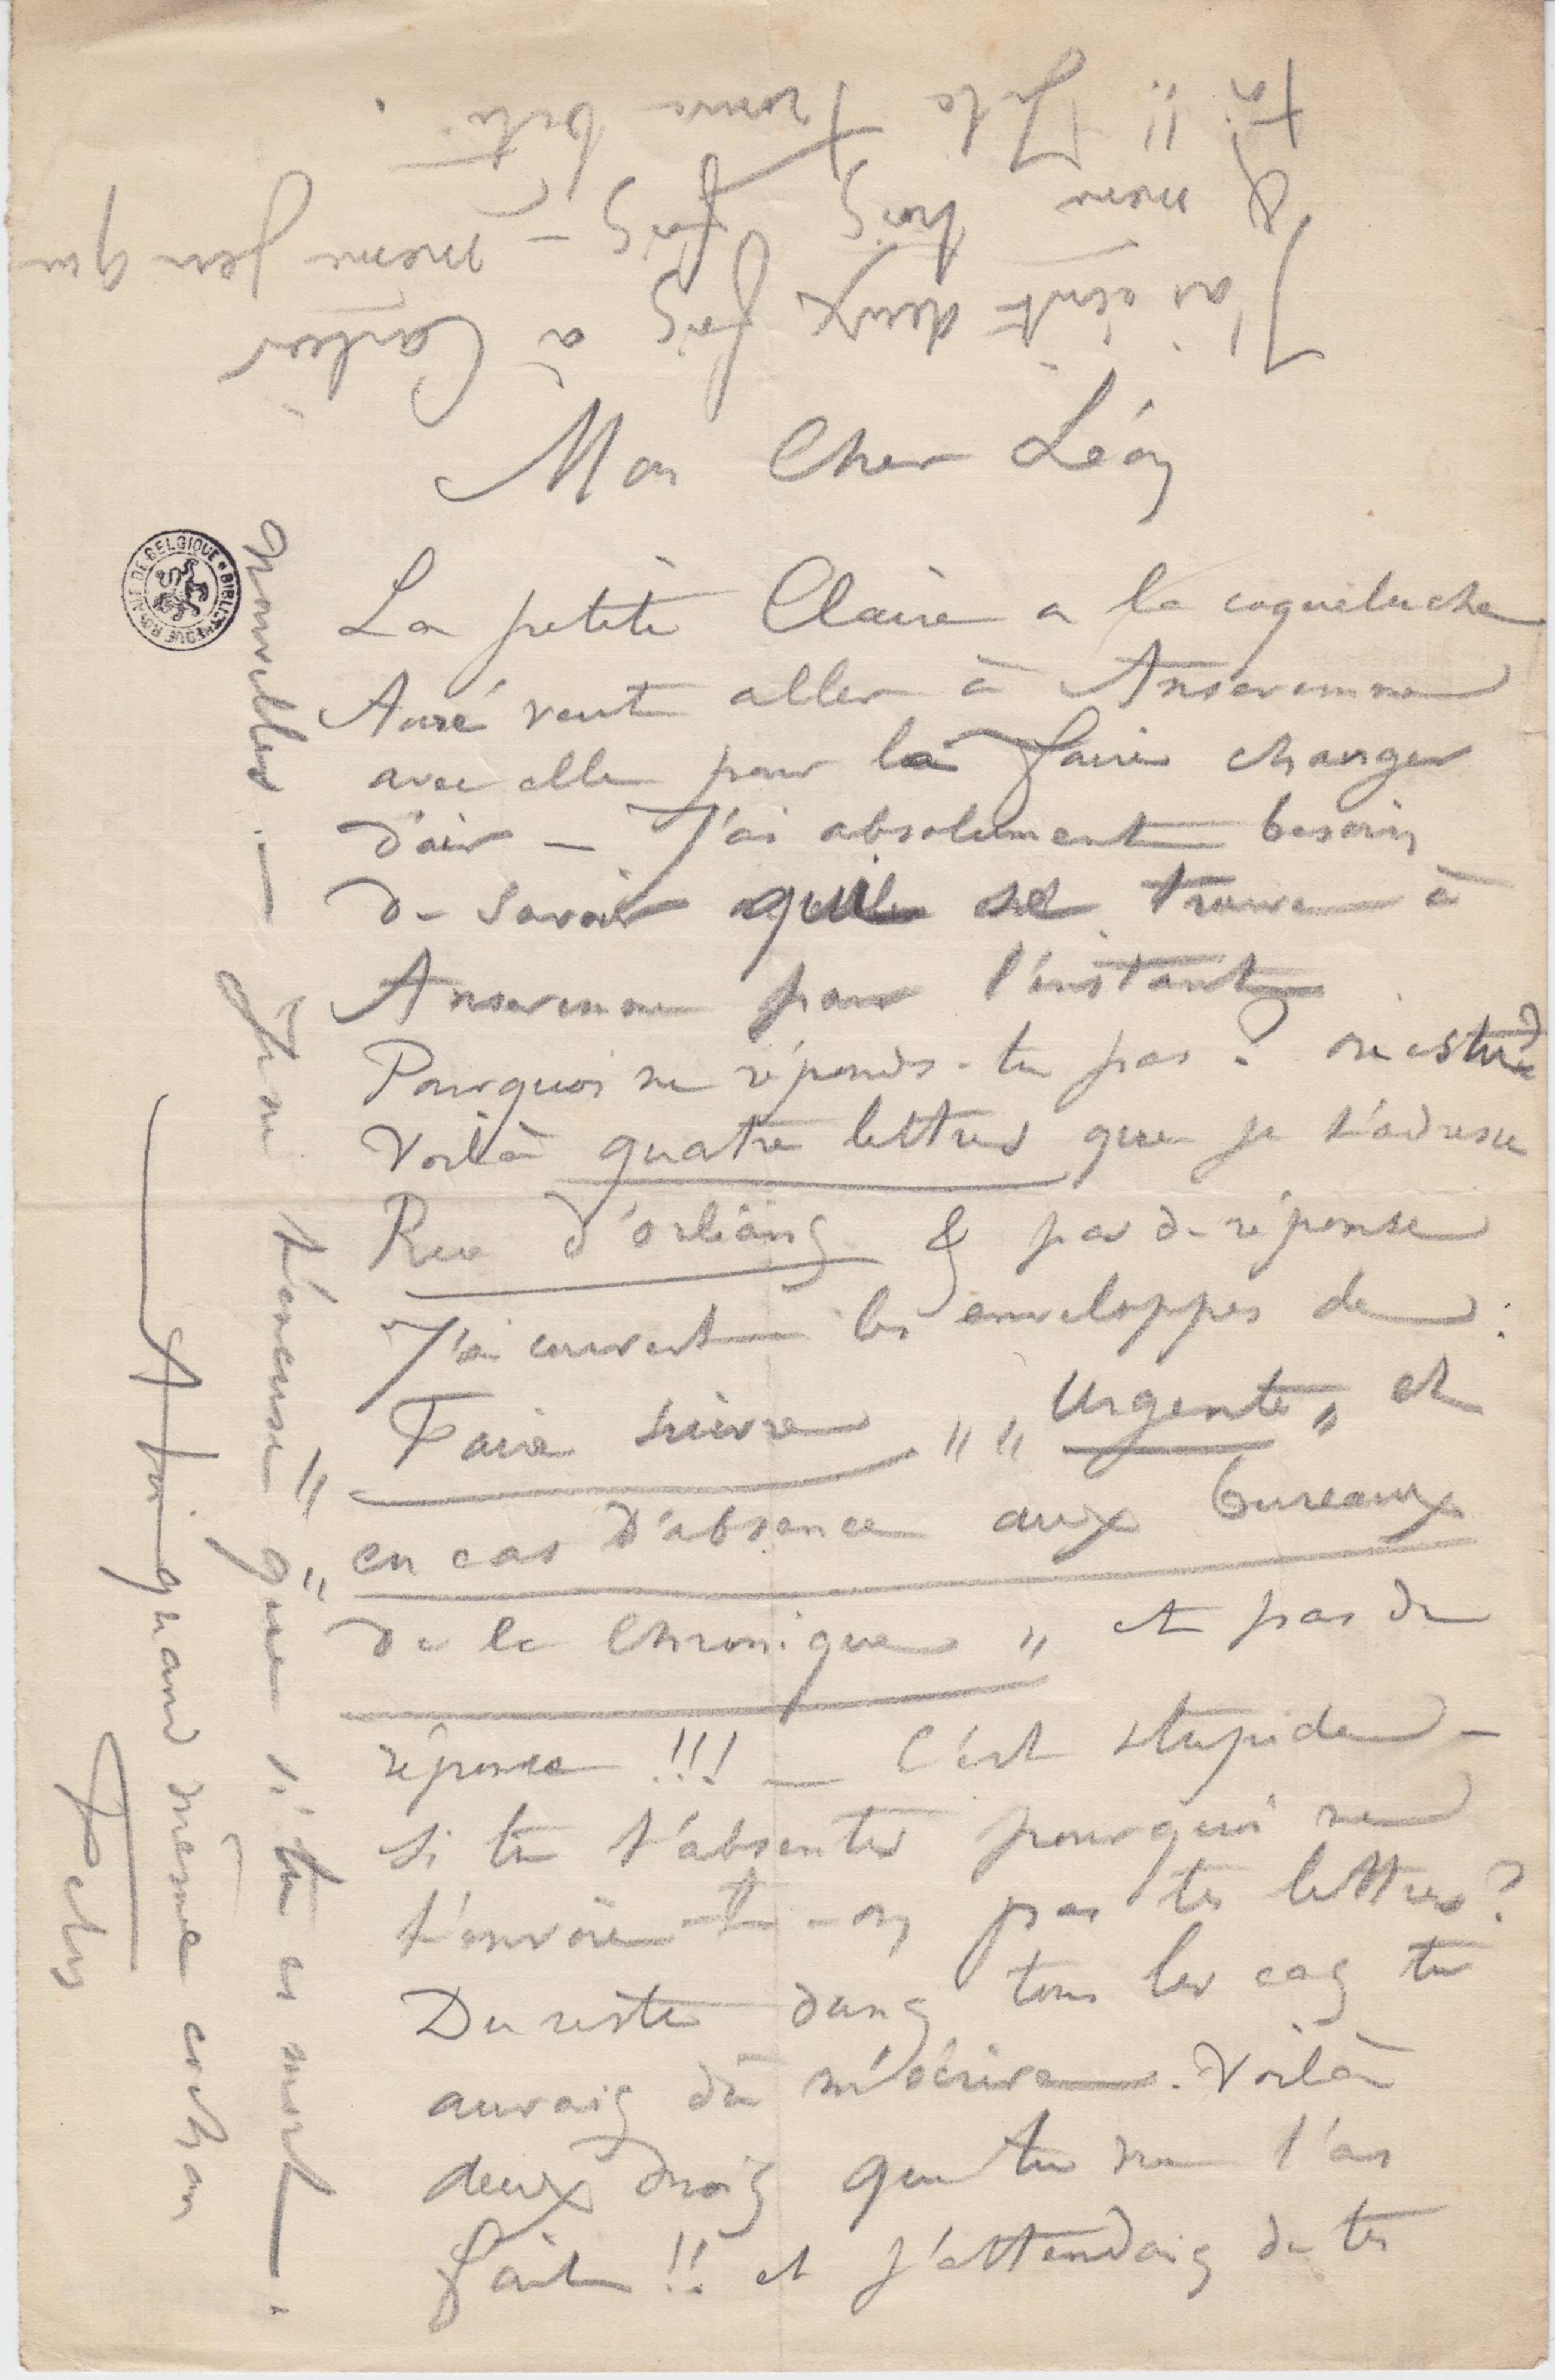 Mon Cher Léon
La petite Claire a la coqueluche
Auré veut aller à Anseremme
avec elle pour la faire changer
d'air — J'ai absolument besoin
de savoir qui se trouve à
Anseremme pour l'instant
Pourquoi ne réponds-tu pas ? où es tu ?
Voilà quatre lettres que je t'adresse
Rue d'orléans & pas de réponse
J'ai couvert les enveloppes de :
Faire suivre " " Urgente " et
" en cas d'absence aux bureaux
de la Chronique " et pas de
réponse !!! — C'est stupide —
Si tu t'absentes pourquoi ne
t'envoie-t-on pas tes lettres ?
Du reste dans tous les cas tu
aurais dû m'écrire. Voilà
deux mois que tu ne l'as
fait !! et j'attendais de tes
nouvelles. — Je ne t'excuse "
que si tu es mort — .
A toi quand même cochon
Fély
J'ai écrit deux fois à Cartier
& moins trois fois — même jeu que
toi !!